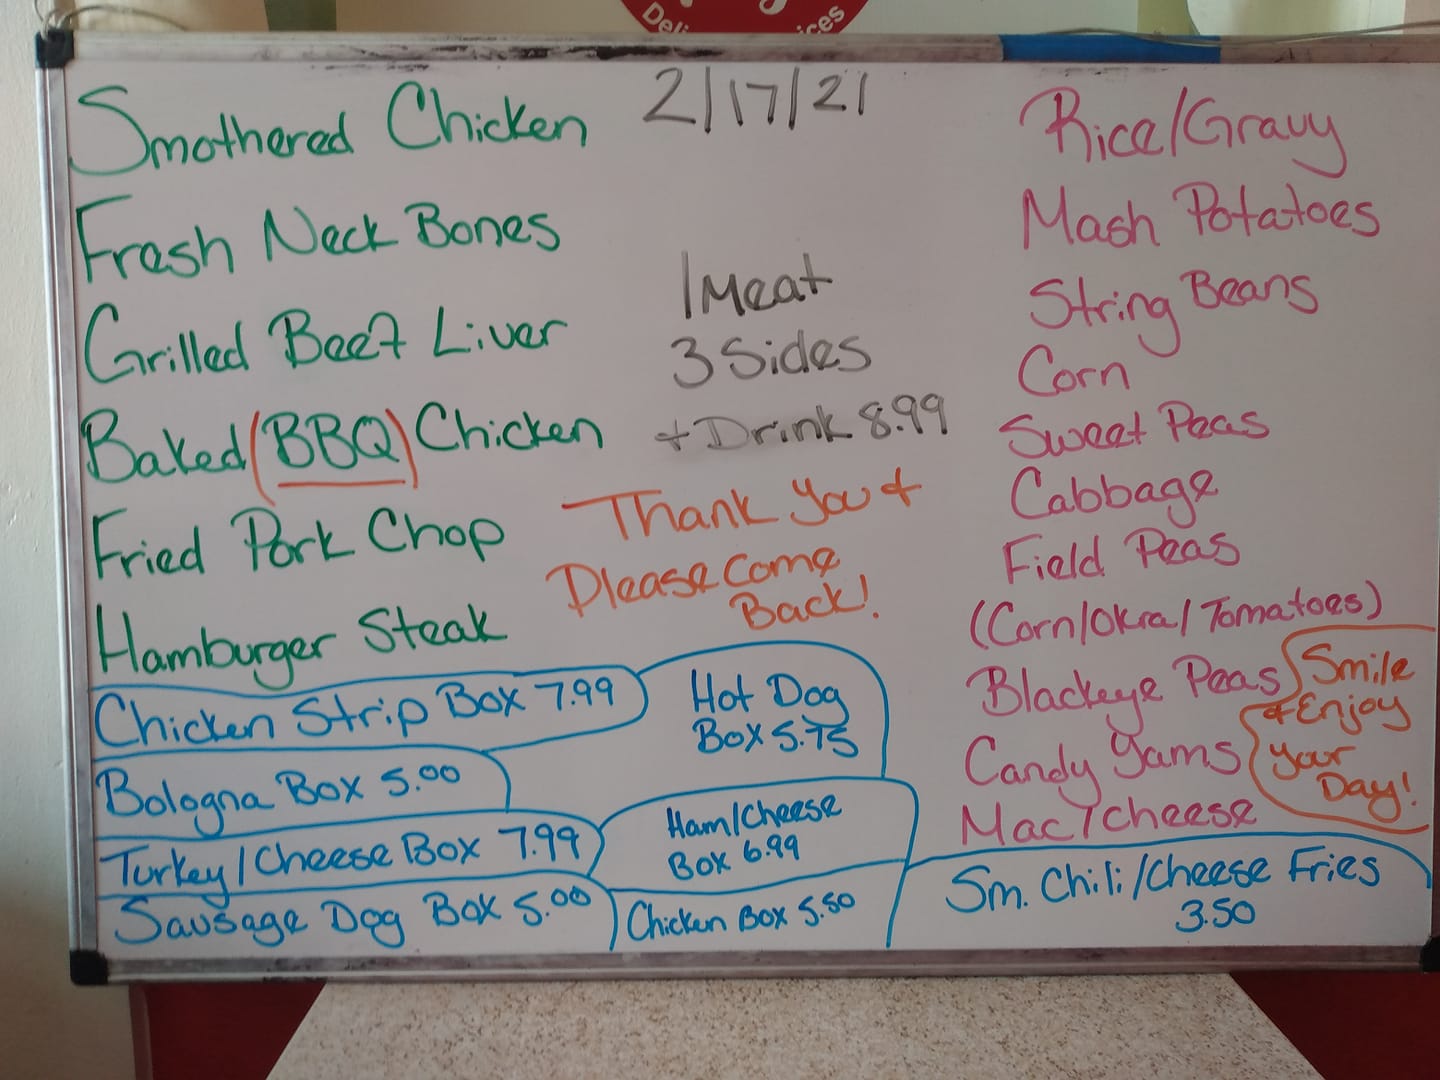 Smothered Chicken
Fresh Neck Bones
Grilled Beef Liver
Baked (BBQ) Chicken
Fried Pork Chop
Hamburger Steak
2/17/21
1 Meat
3 Sides
+ Drink 8.99
Thank You &
Please Come
Back!
Rice/Gravy
Mash Potatoes
String Beans
Corn
Sweet Peas
Cabbage
Field Peas
(Corn/Okra/Tomatoes)
Blackeye Peas
Candy Yams
Mac/cheese
Smile
& Enjoy
your
Day!
Chicken Strip Box 7.99
Bologna Box 5.00
Turkey/Cheese Box 7.99
Sausage Dog Box 5.00
Hot Dog
Box 5.75
Ham/Cheese
Box 6.99
Chicken Box 5.50
Sm. Chili/Cheese Fries
3.50